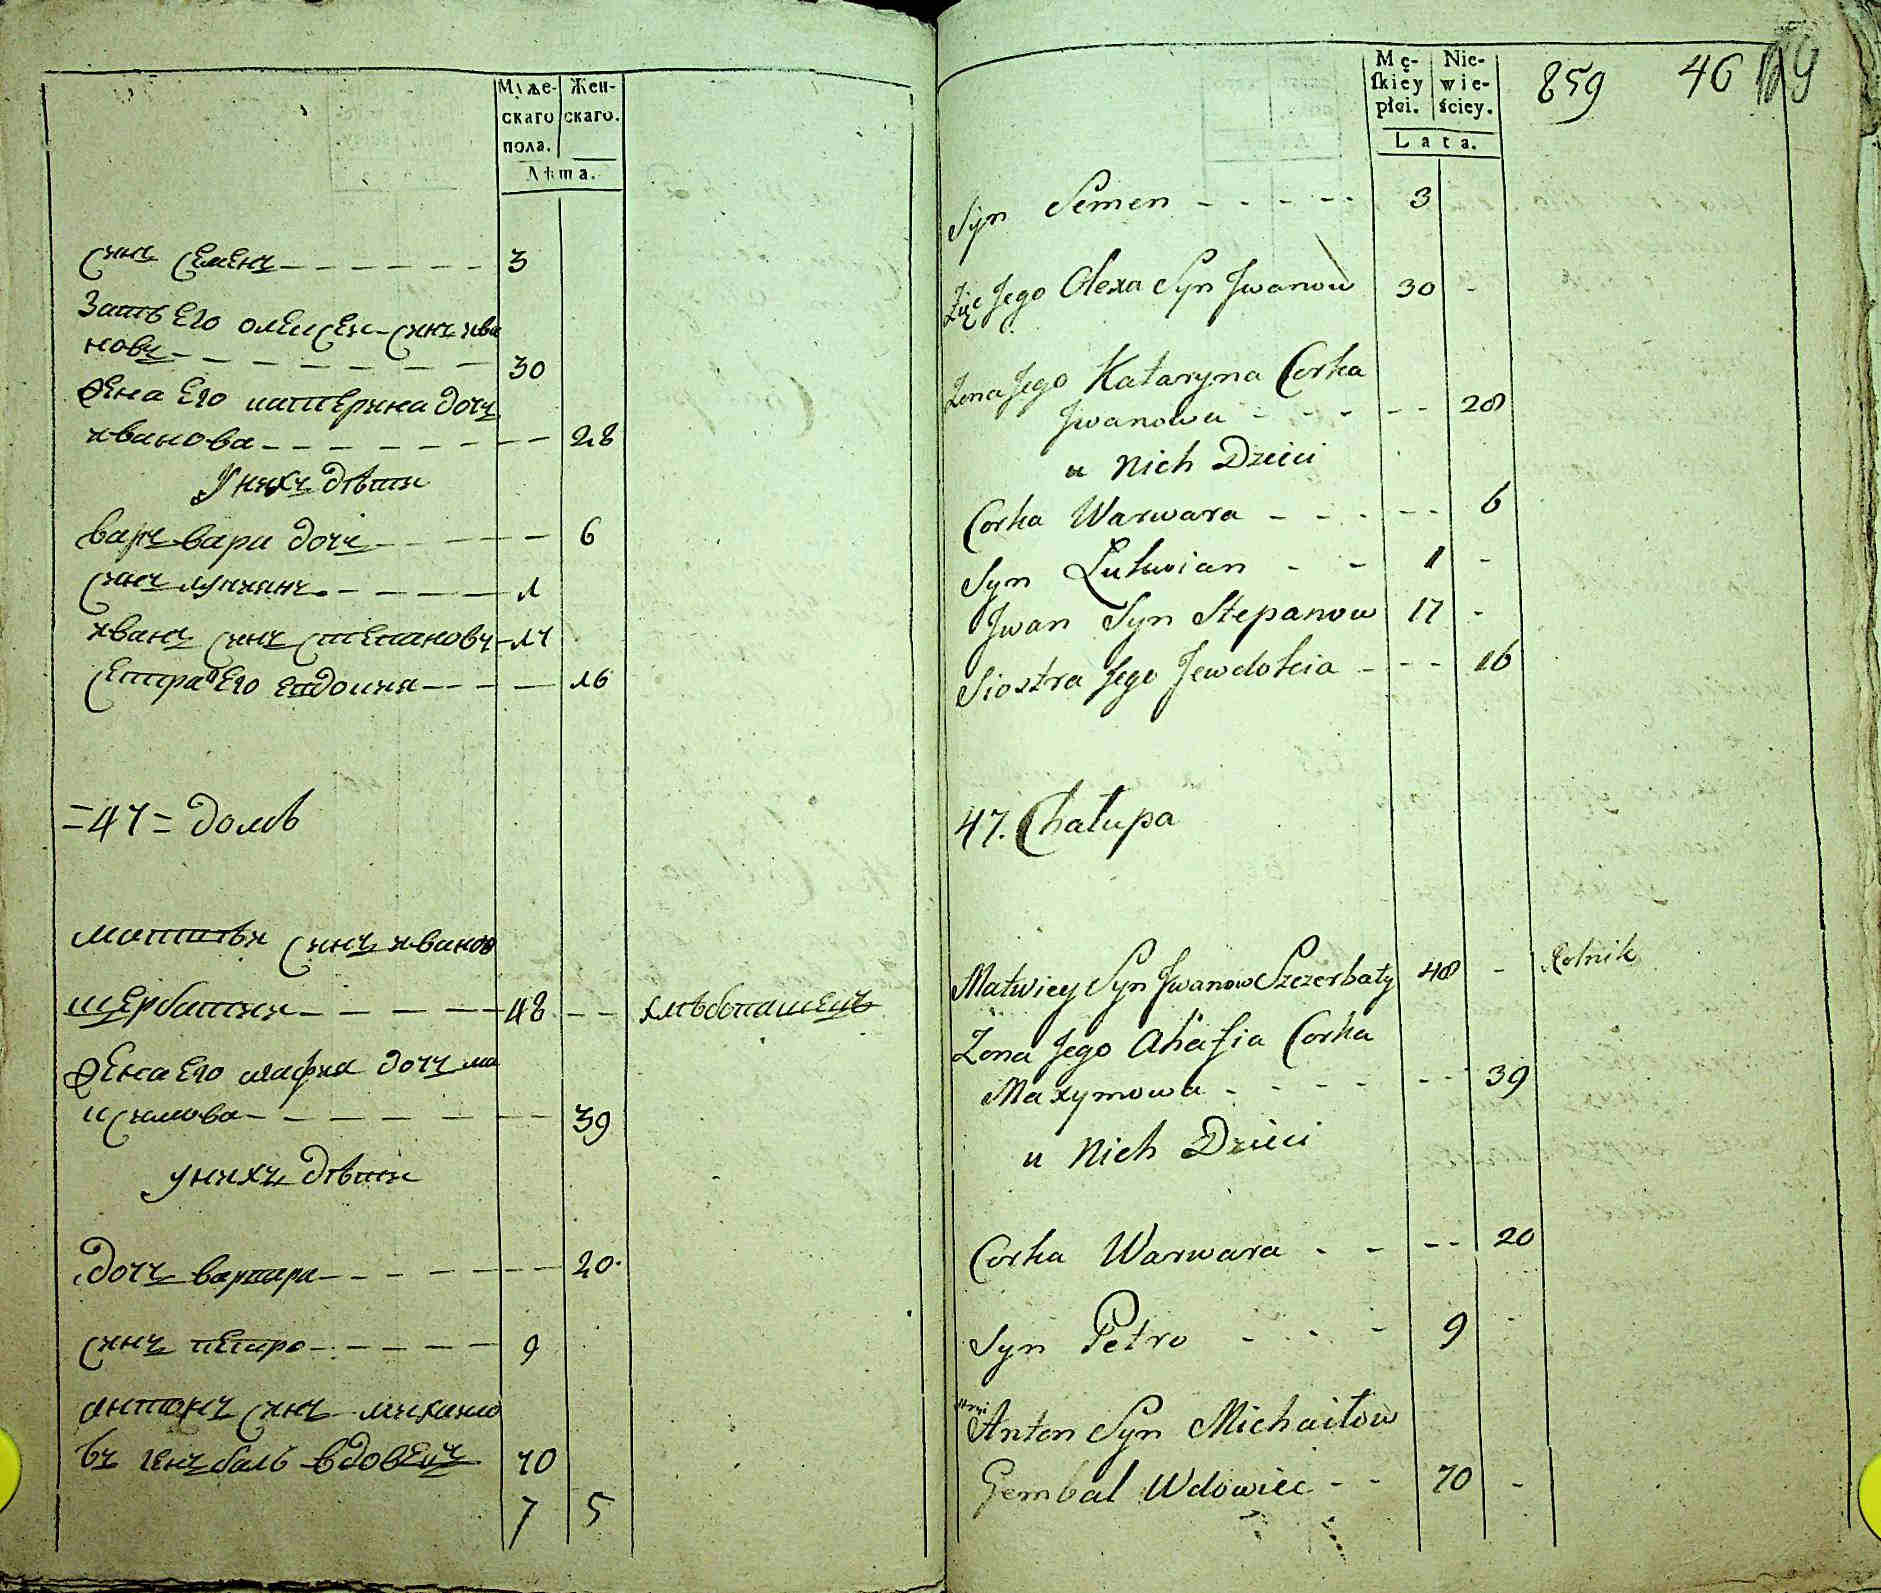 Муже-
скаго
пола.
Жен-
скаго.
Лѣта.
синъ семенъ 3
Зять его олексей синъ ива
новъ 30
жена его катерина дочъ
иванова 28
У нихъ дѣти
варъвара дочъ 6
синъ лукиянъ 1
иванъ синъ степановъ 17
сестра его евдокия 16
=47= домъ
матвѣй синъ иванов
щербатий 48 хлѣбопашецъ
жена его агафия дочъ ма
ксимова 39
у нихъ дѣти
дочъ варвара 20
синъ петро 9
антонъ синъ михайло
въ генъбаль вдовецъ 70
7 5
Mę-
skiey
płci.
Nie-
wie-
ściey.
Lata.
859 46
Syn Semen 3
Zięć Jego Olexa Syn Jwanow 30
Żona Jego Kataryna Corka
Jwanowa 28
u Nich Dzieci
Corka Warwara 6
Syn Lukwian 1
Jwan Syn Stepanow 17
Siostra Jego Jewdokia 16
47. Chałupa
Matwiey Syn Jwanow Szczerbaty 48 Rolnik
Żona Jego Ahafia Corka
Maxymowa 39
u Nich Dzieci
Corka Warwara 20
Syn Petro 9
Anton Syn Michaiłow
Gembal Wdowiec 70